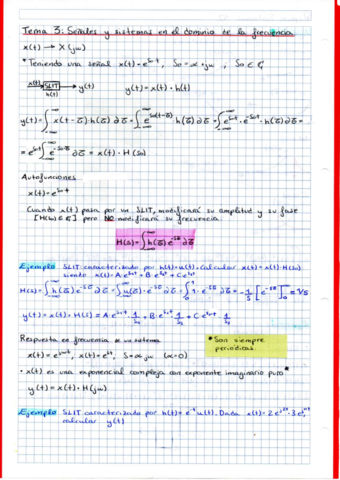 Tema 3: Señales y sistemas en el dominio de la frecuencia
x(t) → X(jω)
* Teniendo una señal x(t) = e^{s₀t}, s₀ = α + jω, s₀ ∈ ℂ
x(t) → SLIT h(t) → y(t)   y(t) = x(t) * h(t)
y(t) = ∫_{-∞}^{∞} x(t-τ)·h(τ)∂τ = ∫_{-∞}^{∞} e^{s₀(t-τ)} h(τ)∂τ = ∫_{-∞}^{∞} e^{s₀t}·e^{-s₀τ}·h(τ)∂τ =
= e^{s₀t} ∫_{-∞}^{∞} e^{-s₀τ} ∂τ = x(t)·H(s₀)
Autofunciones
x(t) = e^{s₀t}
Cuando x(t) pasa por un SLIT, modificará su amplitud y su fase
[H(s) ∈ ℂ] pero NO modificará su frecuencia.
H(s) = ∫_{-∞}^{∞} h(τ) e^{-sτ} ∂τ
Ejemplo SLIT caracterizado por h(t) = u(t). Calcular y(t) = x(t)·H(s₀)
siendo x(t) = A·e^{s₁t} + B·e^{s₂t} + C·e^{s₃t}
Respuesta en frecuencia de un sistema
* Son siempre periódicas.
x(t) = e^{jωt}, x(t) = e^{st}, s = jω (α=0)
· x(t) es una exponencial compleja con exponente imaginario puro*
y(t) = x(t)·H(jω)
Ejemplo SLIT caracterizado por h(t) = e^{-t} u(t). Dada
calcular y(t)